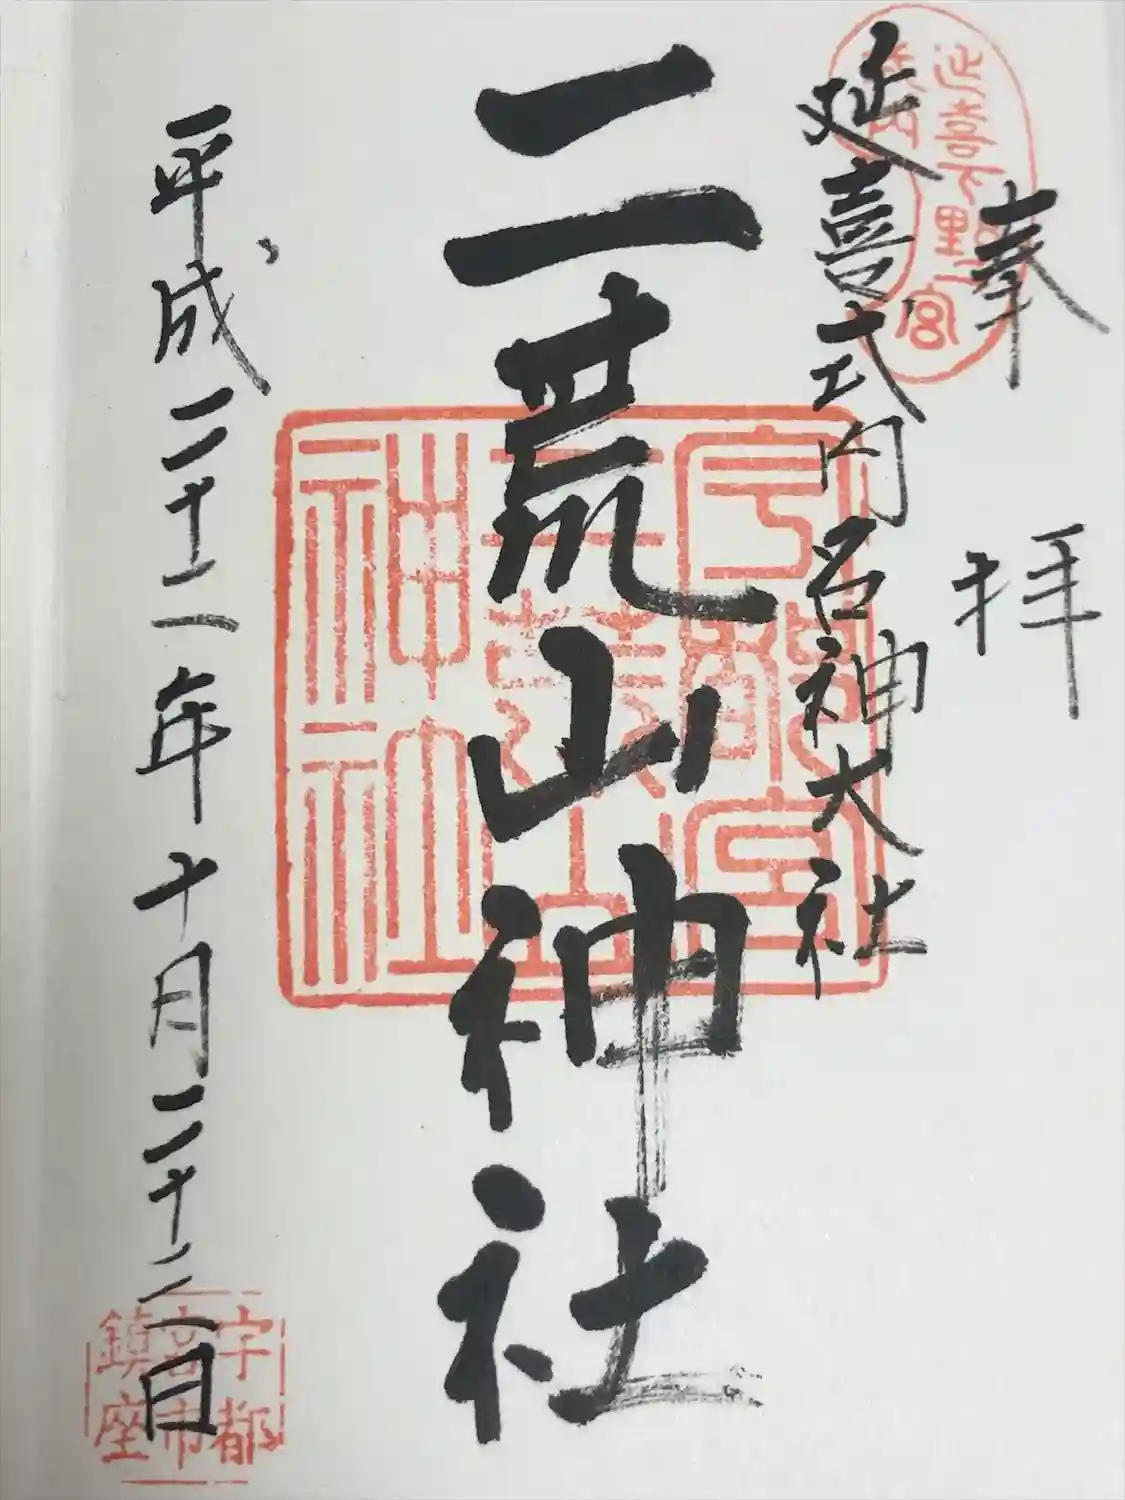 奉拝
延喜下野一宮
延喜式内名神大社
二荒山神社
宇都宮
二荒山
神社
平成二十二年十月二十二日
宇都
宮市
鎮座